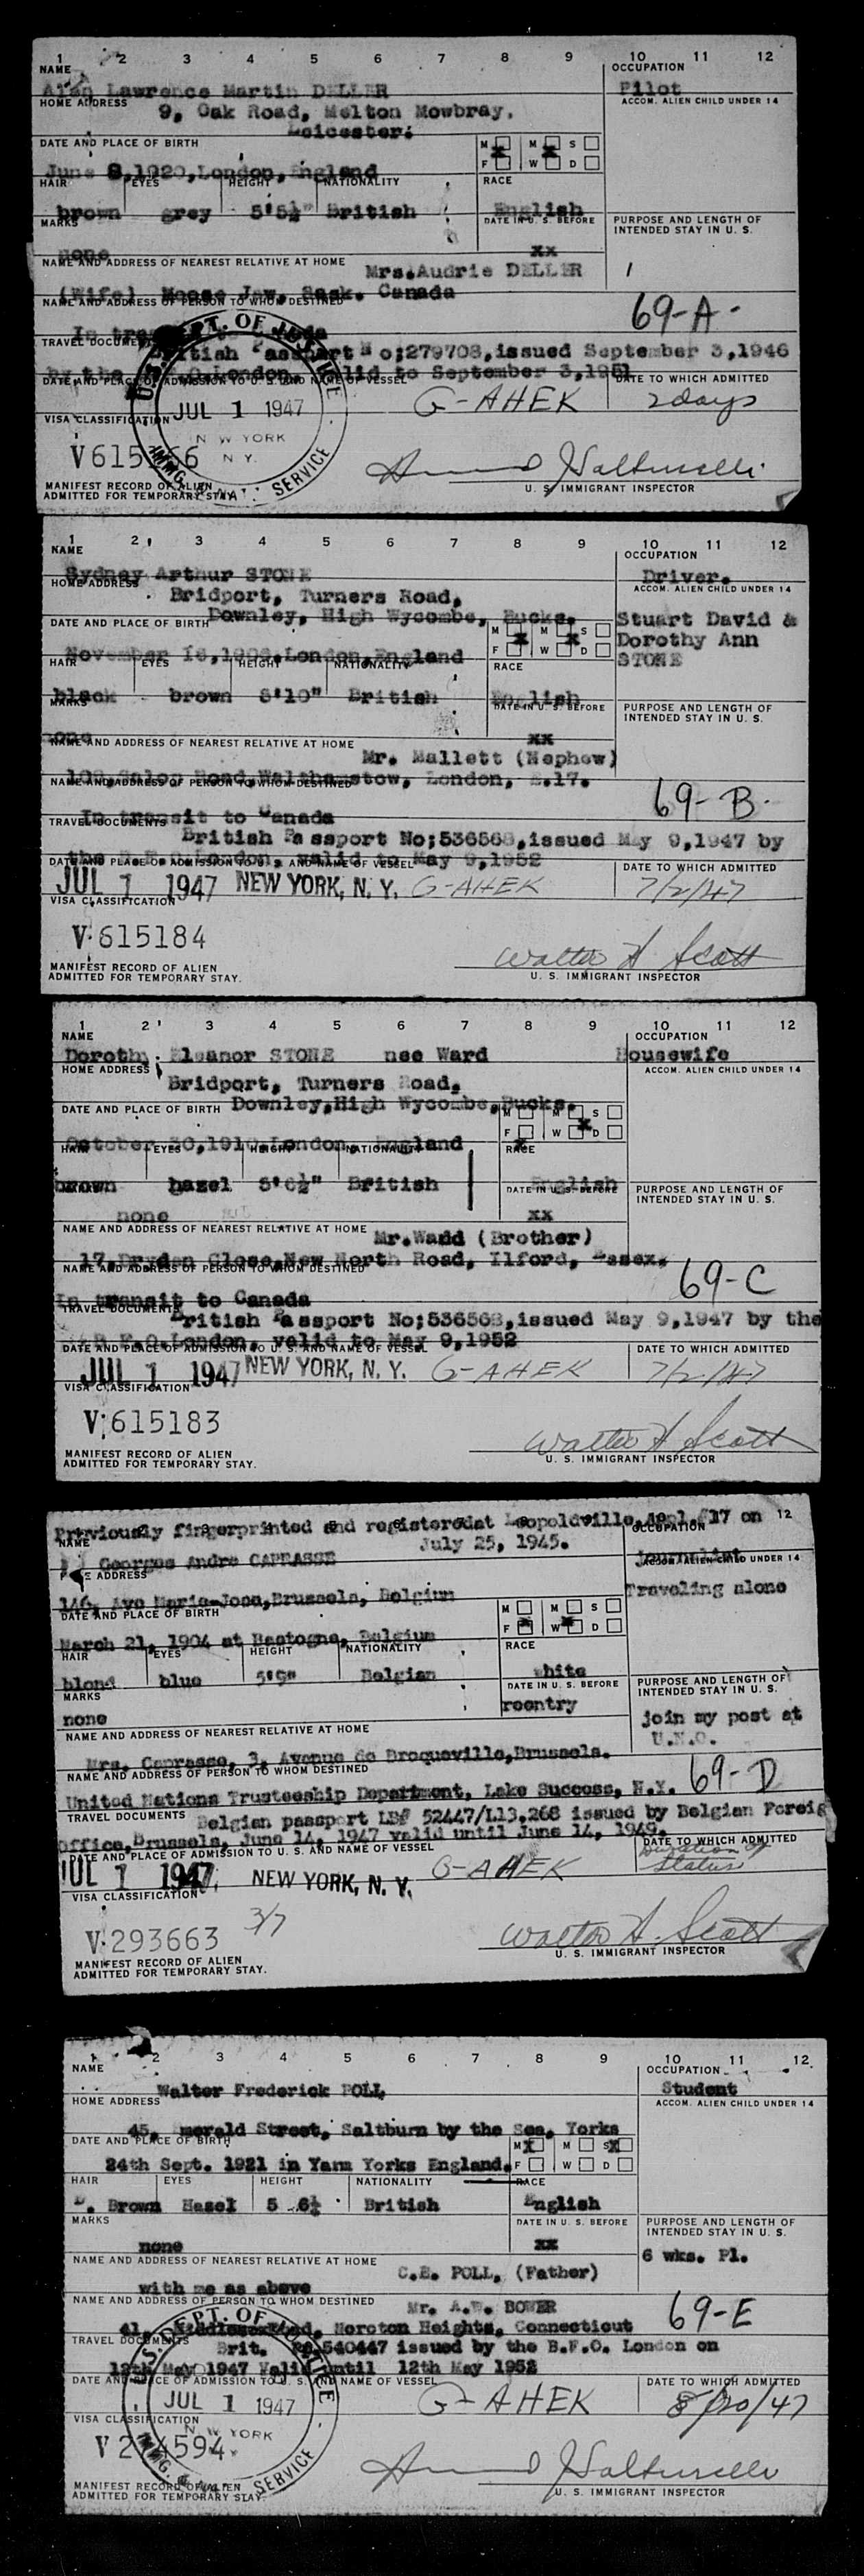 1 2 3 4 5 6 7 8 9 10 11 12
NAME OCCUPATION
Lawrence Martin DELLER Pilot
HOME ADDRESS ACCOM. ALIEN CHILD UNDER 14
9, Oak Road, Melton Mowbray,
Leicester.
DATE AND PLACE OF BIRTH M F M W S D
June 8,1920,London,England
HAIR EYES HEIGHT NATIONALITY RACE
brown grey 5'5½" British English
MARKS DATE IN U. S. BEFORE PURPOSE AND LENGTH OF INTENDED STAY IN U. S.
none xx
NAME AND ADDRESS OF NEAREST RELATIVE AT HOME
Mrs.Audrie DELLER
(Wife) Moose Jaw, Sask. Canada
NAME AND ADDRESS OF PERSON TO WHOM DESTINED
69-A-
In
TRAVEL DOCUMENTS
British Passport No;279708,issued September 3,1946
by the London, valid to September 3,1951
DATE AND PLACE OF ADMISSION TO U. S. AND NAME OF VESSEL DATE TO WHICH ADMITTED
U.S. DEPT. OF JUSTICE JUL 1 1947 NEW YORK N.Y. IMMG. & NAT. SERVICE
G-AHEK 2days
VISA CLASSIFICATION
V615 66
MANIFEST RECORD OF ALIEN
ADMITTED FOR TEMPORARY STAY.
U. S. IMMIGRANT INSPECTOR
1 2 3 4 5 6 7 8 9 10 11 12
NAME OCCUPATION
Sydney Arthur STONE Driver.
HOME ADDRESS ACCOM. ALIEN CHILD UNDER 14
Bridport, Turners Road,
Downley, High Wycombe, Bucks. Stuart David &
Dorothy Ann
STONE
DATE AND PLACE OF BIRTH M F M W S D
November London,England
HAIR EYES HEIGHT NATIONALITY RACE
black brown 5'10" British English
MARKS DATE IN U. S. BEFORE PURPOSE AND LENGTH OF INTENDED STAY IN U. S.
none xx
NAME AND ADDRESS OF NEAREST RELATIVE AT HOME
Mr. Mallett (Nephew)
Road,Walthamstow, London, E.17.
NAME AND ADDRESS OF PERSON TO WHOM DESTINED
69-B.
In transit to Canada
TRAVEL DOCUMENTS
British Passport No;536568,issued May 9,1947 by
the valid to May 9,1952
DATE AND PLACE OF ADMISSION TO U. S. AND NAME OF VESSEL DATE TO WHICH ADMITTED
JUL 1 1947 NEW YORK, N. Y. G-AHEK 7/2/47
VISA CLASSIFICATION
V-615184
Walter A Scott
MANIFEST RECORD OF ALIEN
ADMITTED FOR TEMPORARY STAY.
U. S. IMMIGRANT INSPECTOR
1 2 3 4 5 6 7 8 9 10 11 12
NAME OCCUPATION
Dorothy Eleanor STONE nee Ward Housewife
HOME ADDRESS ACCOM. ALIEN CHILD UNDER 14
Bridport, Turners Road,
DATE AND PLACE OF BIRTH Downley,High Wycombe,Bucks.
M F M W S D
October London, England
HAIR EYES HEIGHT NATIONALITY RACE
brown hazel 5'6½" British English
DATE IN U. S. BEFORE PURPOSE AND LENGTH OF INTENDED STAY IN U. S.
none xx
NAME AND ADDRESS OF NEAREST RELATIVE AT HOME
Mr.Wadd (Brother)
17,Dryden Close,New North Road, Ilford, Essex.
NAME AND ADDRESS OF PERSON TO WHOM DESTINED
69-C
In transit to Canada
TRAVEL DOCUMENTS
British Passport No;536568,issued May 9,1947 by the
F.O.London, valid to May 9,1952
DATE AND PLACE OF ADMISSION TO U. S. AND NAME OF VESSEL DATE TO WHICH ADMITTED
JUL 1 1947 NEW YORK, N. Y. G-AHEK 7/2/47
VISA CLASSIFICATION
V-615183
Walter A Scott
MANIFEST RECORD OF ALIEN
ADMITTED FOR TEMPORARY STAY.
U. S. IMMIGRANT INSPECTOR
Previously fingerprinted and registered at Leopoldville, 17 on 12
July 25, 1945.
NAME OCCUPATION
Georges Andre CAPRASSE Journalist
ADDRESS ACCOM. ALIEN CHILD UNDER 14
146, Ave Marie-Jose,Brussels, Belgium Traveling alone
DATE AND PLACE OF BIRTH M F M W S D
March 21, 1904 at Bastogne, Belgium
HAIR EYES HEIGHT NATIONALITY RACE
blond blue 5'9" Belgian white
MARKS DATE IN U. S. BEFORE PURPOSE AND LENGTH OF INTENDED STAY IN U. S.
none reentry join my post at
U.N.O.
NAME AND ADDRESS OF NEAREST RELATIVE AT HOME
Mrs. Caprasse, 3, Avenue de Broqueville,Brussels.
NAME AND ADDRESS OF PERSON TO WHOM DESTINED
United Nations Trusteeship Department, Lake Success, N.Y. 69-D
TRAVEL DOCUMENTS Belgian passport LB# 52447/L13,268 issued by Belgian Foreig
Office,Brussels, June 14, 1947 valid until June 14, 1949.
DATE AND PLACE OF ADMISSION TO U. S. AND NAME OF VESSEL DATE TO WHICH ADMITTED
JUL 1 1947 NEW YORK, N. Y. G-AHEK Duration of Status
VISA CLASSIFICATION
V-293663 3/7
Walter A. Scott
MANIFEST RECORD OF ALIEN
ADMITTED FOR TEMPORARY STAY.
U. S. IMMIGRANT INSPECTOR
1 2 3 4 5 6 7 8 9 10 11 12
NAME OCCUPATION
Walter Frederick POLL Student
HOME ADDRESS ACCOM. ALIEN CHILD UNDER 14
45, Emerald Street, Saltburn by the Sea, Yorks
DATE AND PLACE OF BIRTH M F M W S D
24th Sept. 1921 in Yarm Yorks England.
HAIR EYES HEIGHT NATIONALITY RACE
D. Brown Hazel 5 6½ British English
MARKS DATE IN U. S. BEFORE PURPOSE AND LENGTH OF INTENDED STAY IN U. S.
none xx 6 wks. Pl.
NAME AND ADDRESS OF NEAREST RELATIVE AT HOME
C.E. POLL, (Father)
with me as above
NAME AND ADDRESS OF PERSON TO WHOM DESTINED
Mr. A.W. BOWER 69-E
41, Middlesex Road, Noroton Heights, Connecticut
TRAVEL DOCUMENTS
Brit. 540447 issued by the B.F.O. London on
12th May 1947 Valid until 12th May 1952
DATE AND PLACE OF ADMISSION TO U. S. AND NAME OF VESSEL DATE TO WHICH ADMITTED
U.S. DEPT. OF JUSTICE JUL 1 1947 NEW YORK IMMG. & NAT. SERVICE
G-AHEK 8/20/47
VISA CLASSIFICATION
V 274594
MANIFEST RECORD OF ALIEN
ADMITTED FOR TEMPORARY STAY.
U. S. IMMIGRANT INSPECTOR